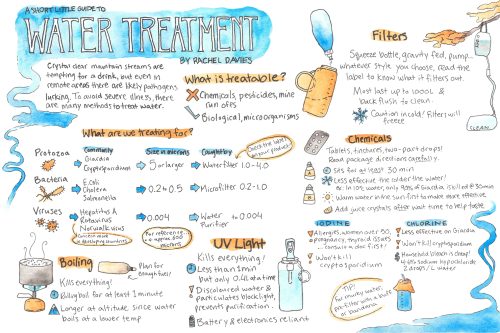 A SHORT LITTLE GUIDE TO
WATER TREATMENT
BY RACHEL DAVIES
Crystal clear mountain streams are
tempting for a drink, but even in
remote areas there are likely pathogens
lurking. To avoid severe illness, there
are many methods to treat water.
What is treatable?
Chemicals, pesticides, mine
run offs
Biological, microorganisms
Filters
Squeeze bottle, gravity fed, pump...
whatever style you choose, read the
label to know what it filters out.
Most last up to 1000L &
back flush to clean.
Caution in cold! Filters will
freeze
CLEAN
What are we treating for?
Community
Size in microns
Caught by
Check the label
on your product!
Protozoa
Giardia
Cryptosporidium
5 or larger
Water filter 1.0-4.0
Bacteria
E. Coli
Cholera
Salmonella
0.2 to 0.5
Microfilter 0.2-1.0
Viruses
Hepatitis A
Rotavirus
Norwalk virus
0.004
Water
Purifier to 0.004
Concern more
in developing countries
For reference...
Chemicals
Tablets, tinctures, two-part drops!
Read package directions carefully.
Sits for at least 30 min
Less effective the colder the water!
in 10°C water, only 90% of Giardia is killed @ 30min
Warm water in the sun first to make more effective
Add juice crystals after wait time to help taste
Boiling
Plan for
enough fuel!
Kills everything!
Rolling boil for at least 1 minute
Longer at altitude since water
boils at a lower temp
UV Light
Kills everything!
Less than 1 min
but only 0.4L at a time
Discoloured water &
particulates block light,
prevents purification.
Battery & electronics reliant
IODINE
Allergies, women over 50,
pregnancy, thyroid issues
... consult a doc first!
Won't kill
cryptosporidium
CHLORINE
Less effective on Giardia
Won't kill cryptosporidium
Household bleach is cheap!
2 drops / L water
TIP!
for murky water,
pre-filter with a buff
or bandana